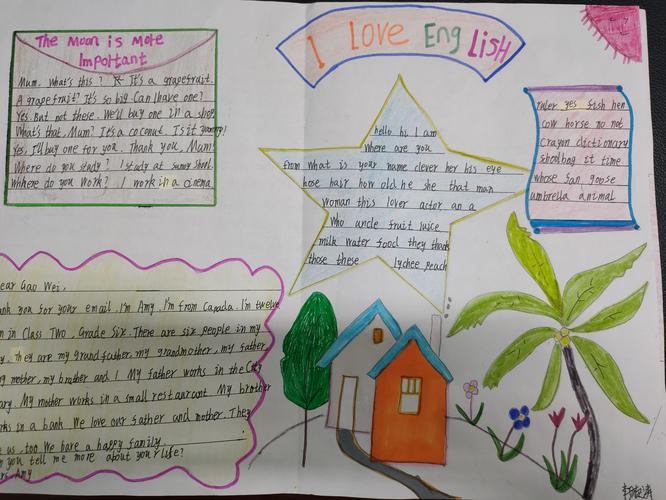 I Love English
The Moon is More
Important
Mum. What's this? It's a grapefruit.
A grapefruit? It's so big Can I have one?
Yes. But not these. We'll buy one in a shop.
What's that, Mum? It's a coconut. Is it yummy?
Yes, I'll buy one for you. Thank you, Mum!
Where do you study? I study at sunny School.
Where do you work? I work in a cinema.
hello hi I am
where are you
from what is your name clever her his eye
hose hair how old he she that man
woman this lover actor an a
who uncle fruit juice
milk water food they thank
those these lychee peach
ruler yes fish hen
cow horse no not
crayon dictionary
shoolbag it time
whose fan goose
umbrella animal
ear Gao Wei,
ank you for your email. I'm Amy. I'm from Canada. I'm twelve
m in Class Two, Grade Six. There are six people in my
y. They are my grandfather, my grandmother, my father
my mother, my brother and I My father works in the City
ary. My mother works in a small restaurant My brother
rks in a bank We love our father and mother. They
e us, too We have a happy family
n you tell me more about your life?
Amy